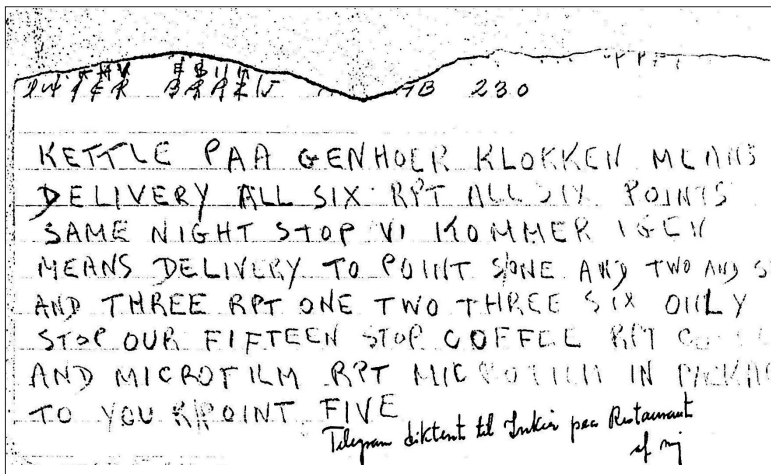 230
KETTLE PAA GENHOER KLOKKEN MEANS
DELIVERY ALL SIX RPT ALL SIX POINTS
SAME NIGHT STOP VI KOMMER IGEN
MEANS DELIVERY TO POINT ONE AND TWO AND
AND THREE RPT ONE TWO THREE SIX ONLY
STOP OUR FIFTEEN STOP COFFEE RPT
AND MICROFILM RPT MICROFILM IN
TO YOU POINT FIVE
Telegram dikteret til paa Restaurant
af mig